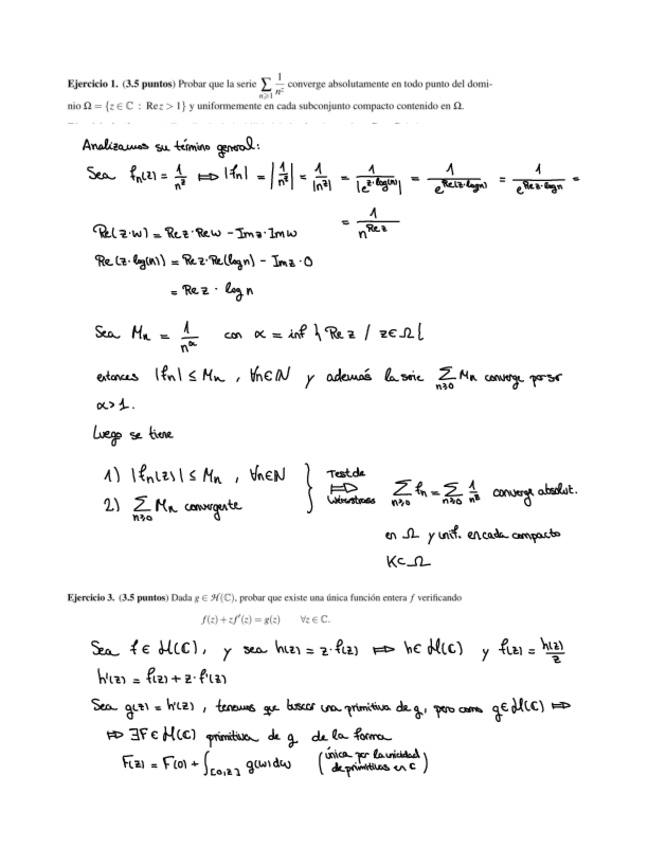 Ejercicio 1. (3.5 puntos) Probar que la serie ∑_{n≥1} 1/n^z converge absolutamente en todo punto del domi-
nio Ω = {z ∈ ℂ : Re z > 1} y uniformemente en cada subconjunto compacto contenido en Ω.
Analizamos su término general:
Sea fn(z) = 1/n^z ⟹ |fn| = |1/n^z| = 1/|n^z| = 1/|e^{z·log(n)}| = 1/e^{Re(z·logn)} = 1/e^{Re z·logn} =
= 1/n^{Re z}
Re(z·w) = Re z·Re w − Im z·Im w
Re(z·log(n)) = Re z·Re(log n) − Im z·0
= Re z · log n
Sea Mn = 1/n^α con α = inf { Re z / z ∈ Ω {
entonces |fn| ≤ Mn , ∀n∈ℕ y además la serie ∑_{n≥0} Mn converge por ser
α > 1.
Luego se tiene
1) |fn(z)| ≤ Mn , ∀n∈ℕ
2) ∑_{n≥0} Mn convergente
} Test de ⟹ Weierstrass ∑_{n≥0} fn = ∑_{n≥0} 1/n^z converge absolut.
en Ω y unif. en cada compacto
K⊂Ω
Ejercicio 3. (3.5 puntos) Dada g ∈ ℋ(ℂ), probar que existe una única función entera f verificando
f(z) + z f′(z) = g(z) ∀z ∈ ℂ.
Sea f ∈ ℋ(ℂ), y sea h(z) = z·f(z) ⟹ h∈ ℋ(ℂ) y f(z) = h(z)/z
h'(z) = f(z) + z·f'(z)
Sea g(z) = h'(z) , tenemos que buscar una primitiva de g, pero como g∈ℋ(ℂ) ⟹
⟹ ∃F∈ℋ(ℂ) primitiva de g de la forma
F(z) = F(0) + ∫_{[0,z]} g(w)dw (única por la unicidad
de primitivas en ℂ)